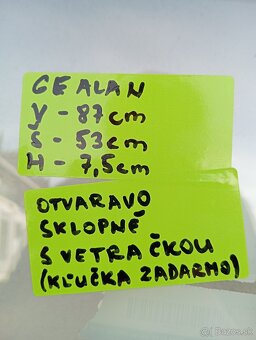 GEALAN
V - 87cm
Š - 53cm
H - 7,5cm
OTVARAVO
SKLOPNÉ
S VETRAČKOU
(KĽUČKA ZADARMO)